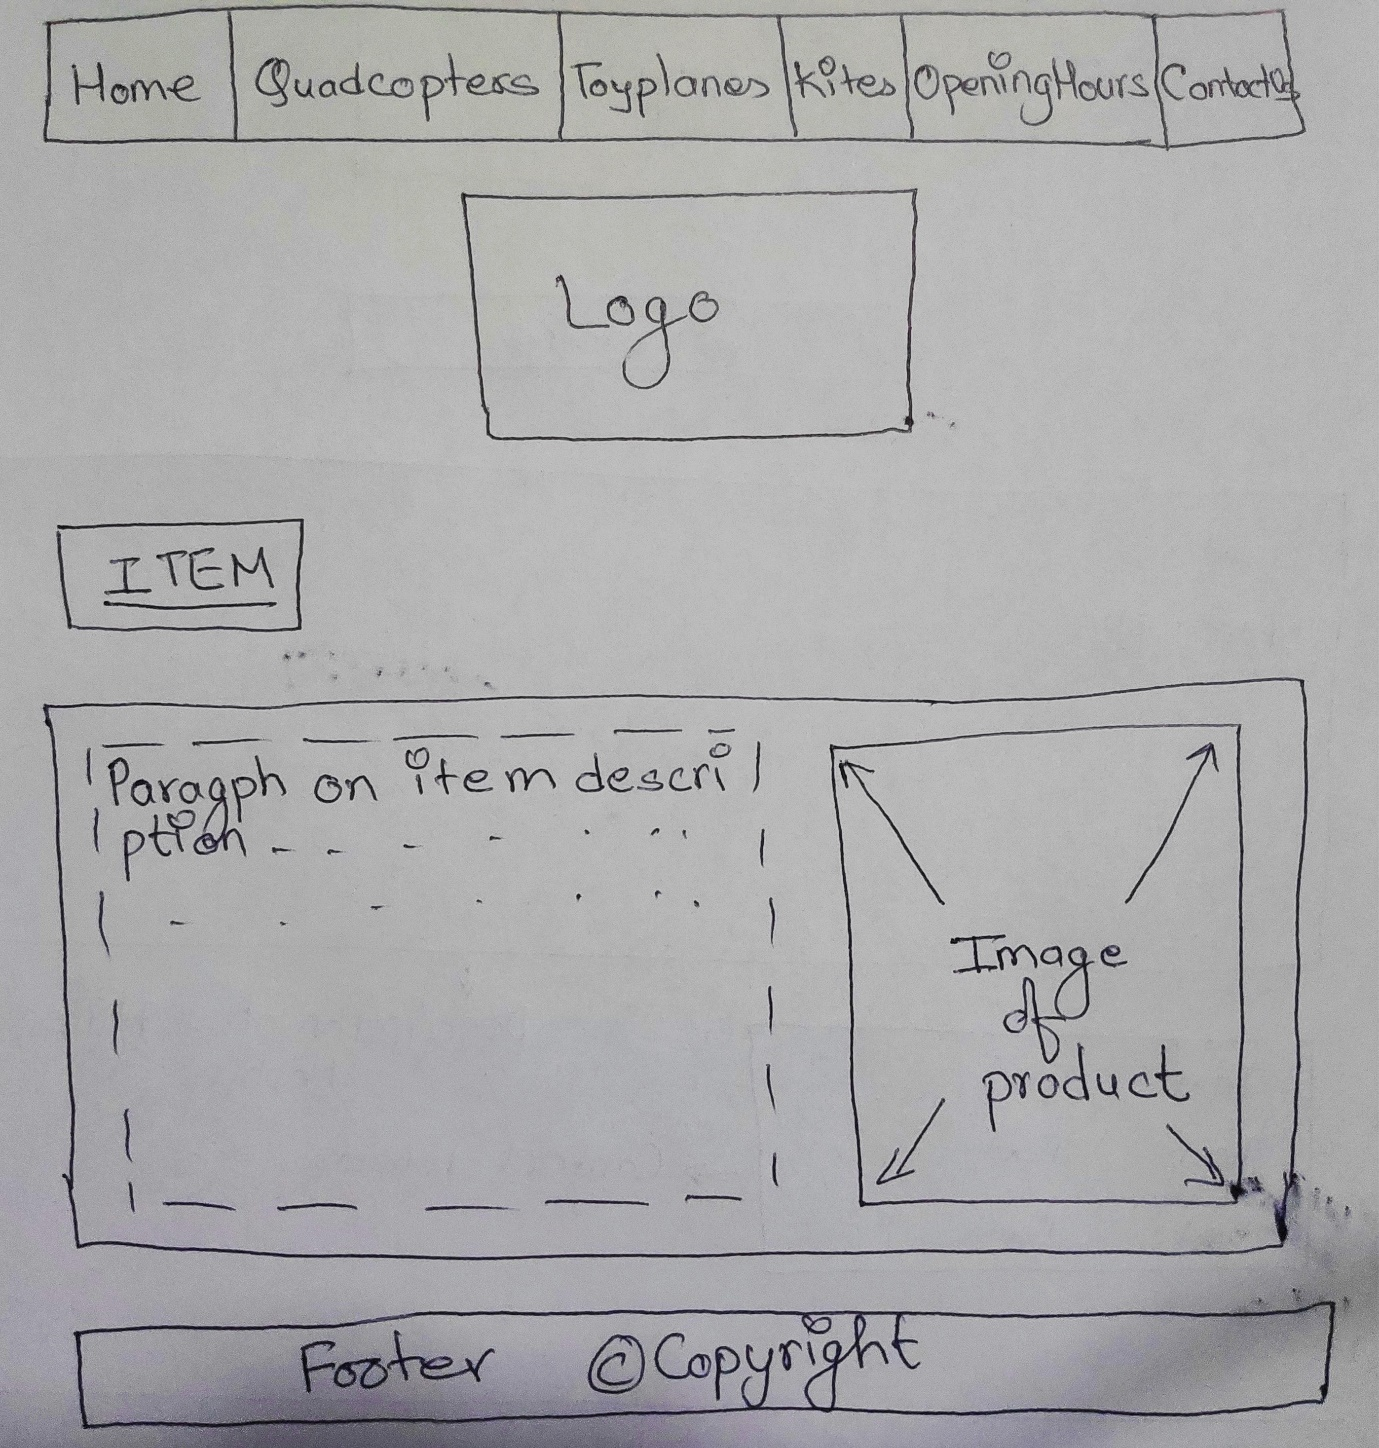 Home Quadcopters Toyplanes Kites OpeningHours ContactUs
Logo
ITEM
Paragph on item descri
ption
Image
of
product
Footer ©Copyright